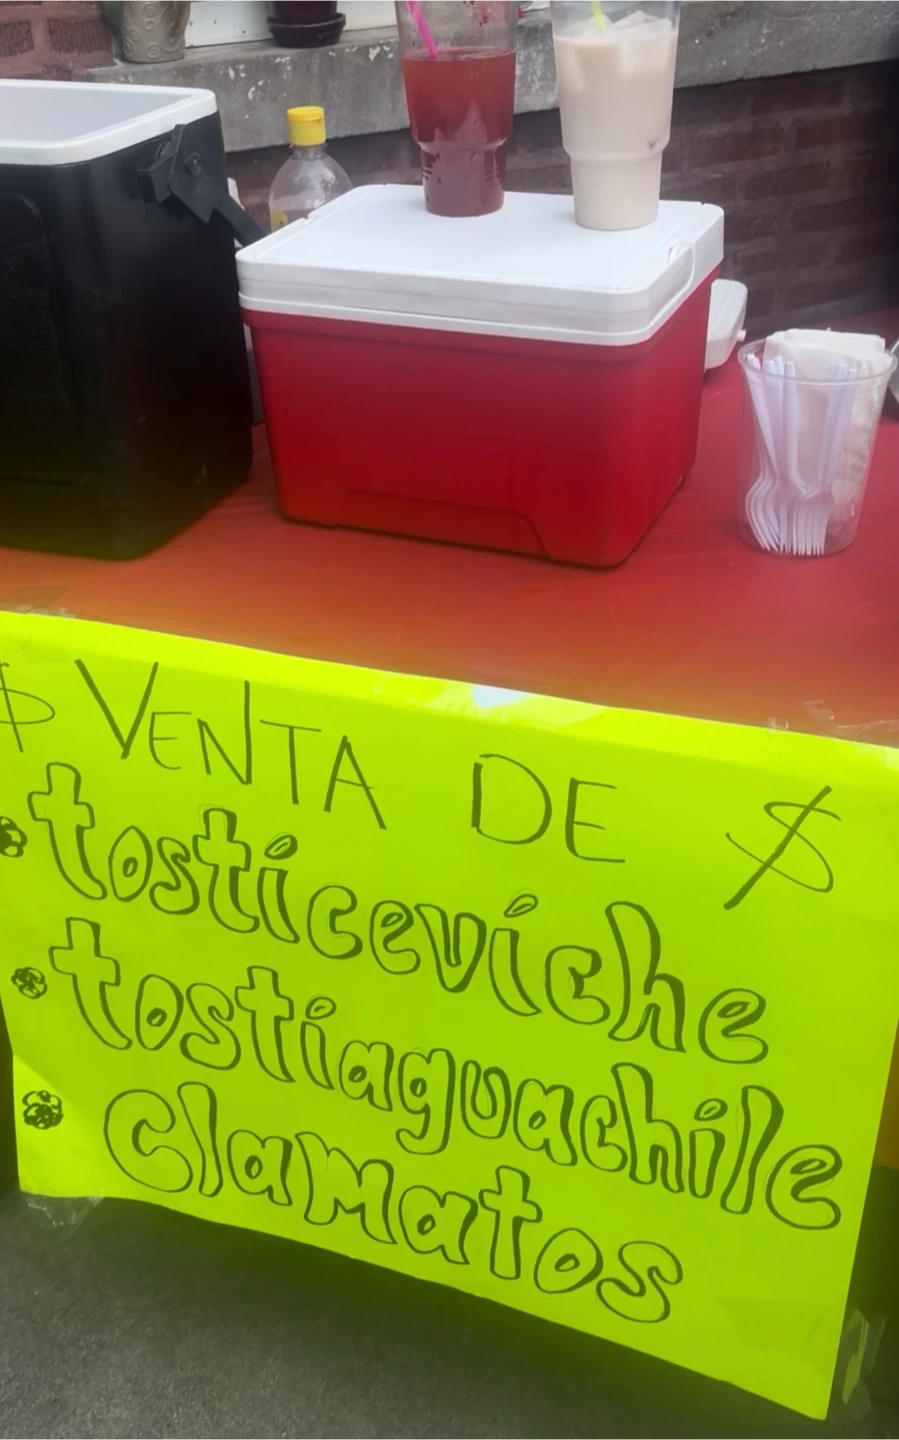 $ VENTA DE $
tosticeviche
tostiaguachile
Clamatos